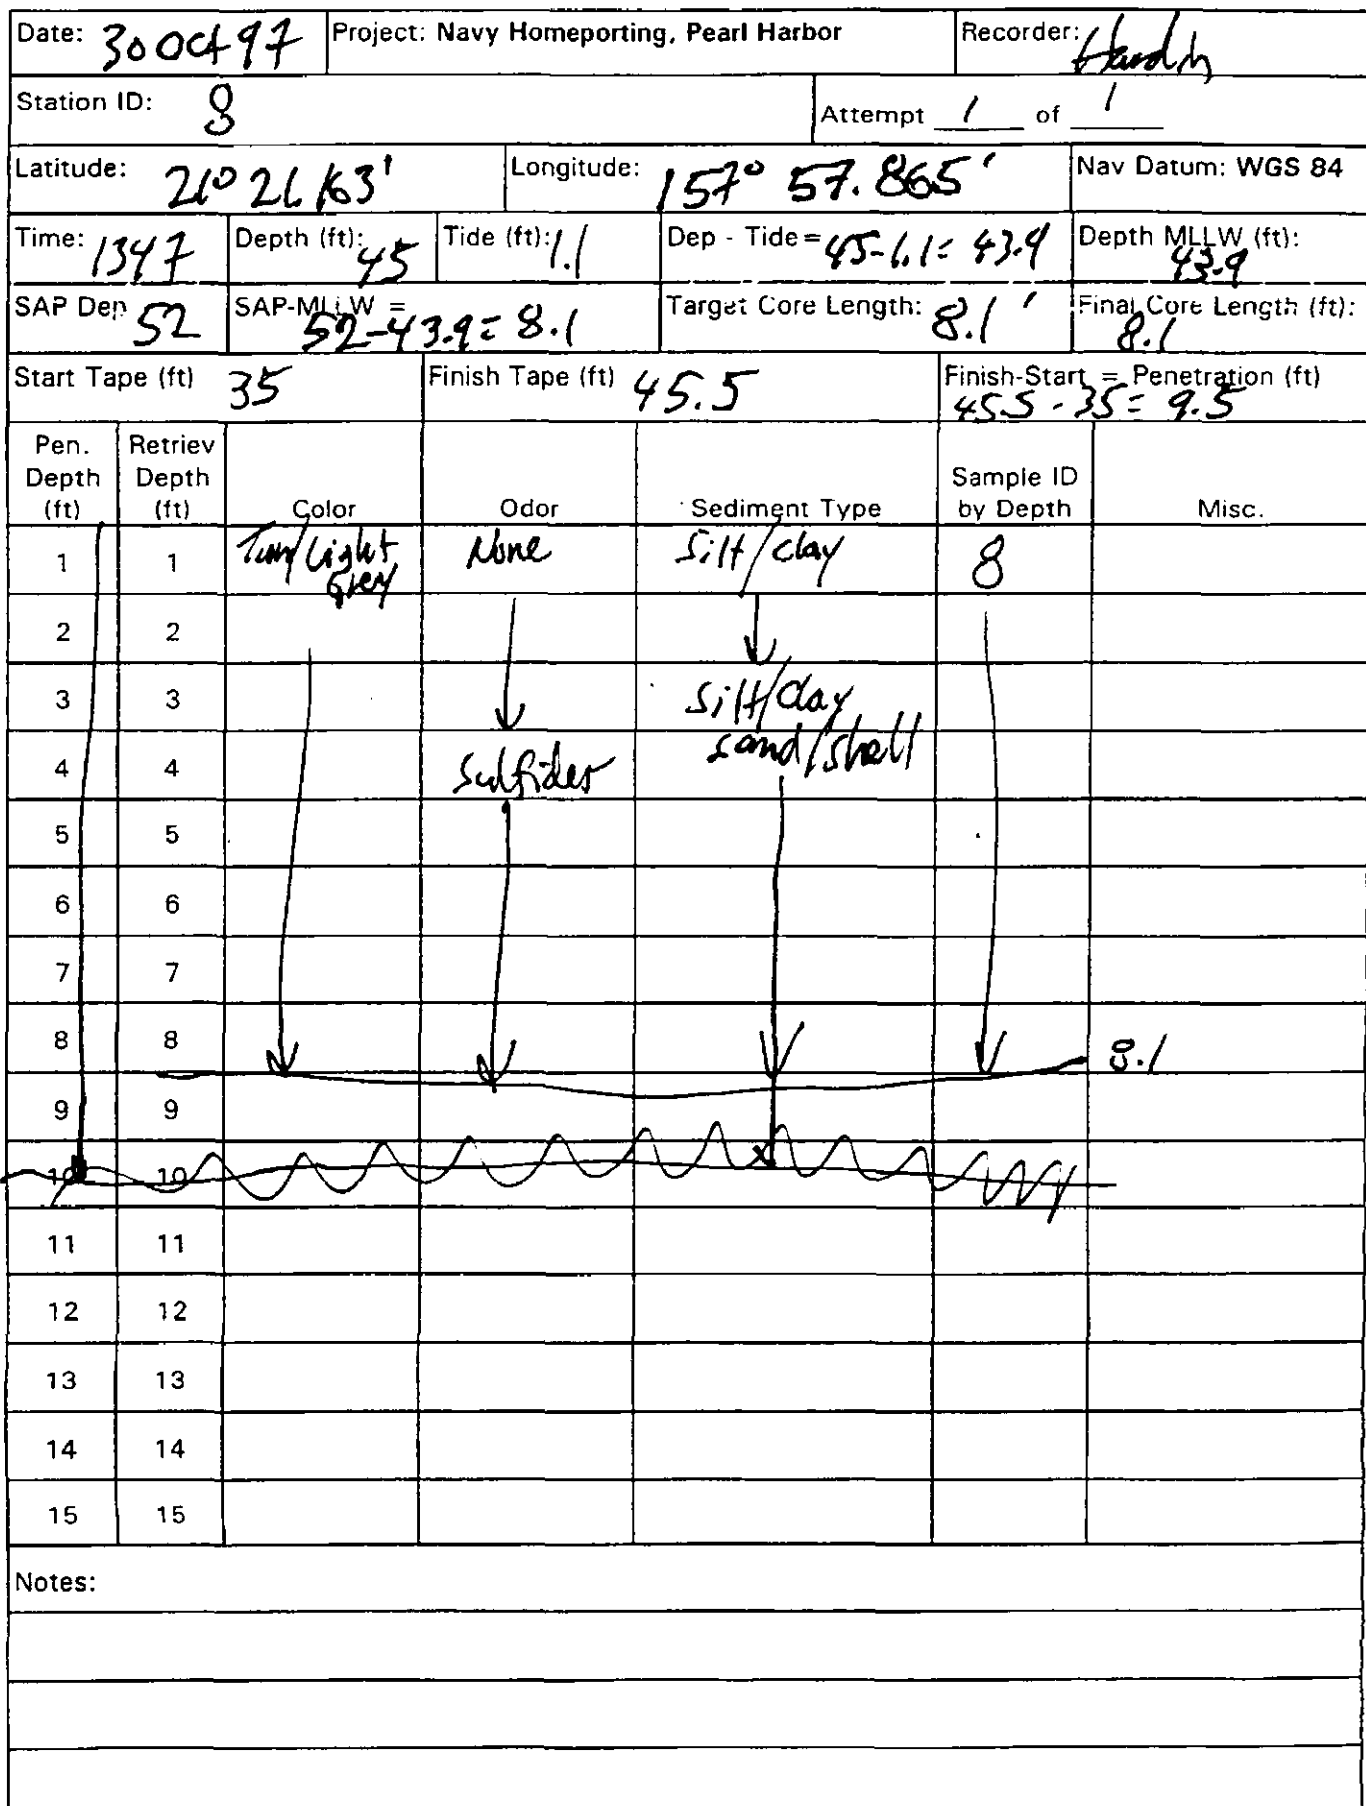 Date: 30 Oct 97 Project: Navy Homeporting, Pearl Harbor Recorder:
Station ID: 8 Attempt 1 of 1
Latitude: 21° 21.163' Longitude: 157° 57.865' Nav Datum: WGS 84
Time: 1347 Depth (ft): 45 Tide (ft): 1.1 Dep - Tide = 45-1.1= 43.9 Depth MLLW (ft): 43.9
SAP Dep 52 SAP-MLLW = 52-43.9= 8.1 Target Core Length: 8.1' Final Core Length (ft): 8.1
Start Tape (ft) 35 Finish Tape (ft) 45.5 Finish-Start = Penetration (ft) 45.5-35= 9.5
Pen. Depth (ft) Retriev Depth (ft) Color Odor Sediment Type Sample ID by Depth Misc.
1 1 Tan/Light Grey None Silt/clay 8
2 2
3 3 Silt/clay
4 4 Sulfides sand/shell
5 5
6 6
7 7
8 8 8.1
9 9
10 10
11 11
12 12
13 13
14 14
15 15
Notes: